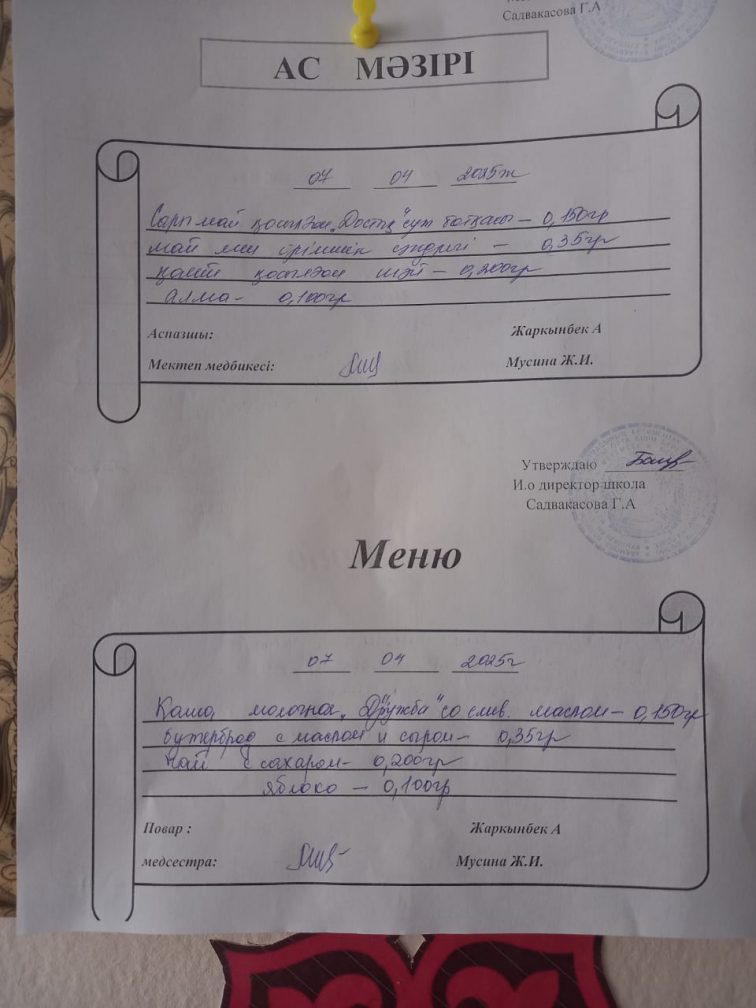 Садвакасова Г.А
АС МӘЗІРІ
07 04 2025ж
Сары май қосылған "Достық" сүт ботқасы – 0,150гр
май мен ірімшік сэндвичі – 0,35гр
қант қосылған шәй – 0,200гр
алма – 0,100гр
Аспазшы: Жаркынбек А
Мектеп медбикесі: Мусина Ж.И.
Утверждаю
И.о директор школа
Садвакасова Г.А
Меню
07 04 2025г
Каша молочная "Дружба" со слив. маслом – 0,150гр
бутерброд с маслом и сыром – 0,35гр
чай с сахаром – 0,200гр
яблоко – 0,100гр
Повар : Жаркынбек А
медсестра: Мусина Ж.И.